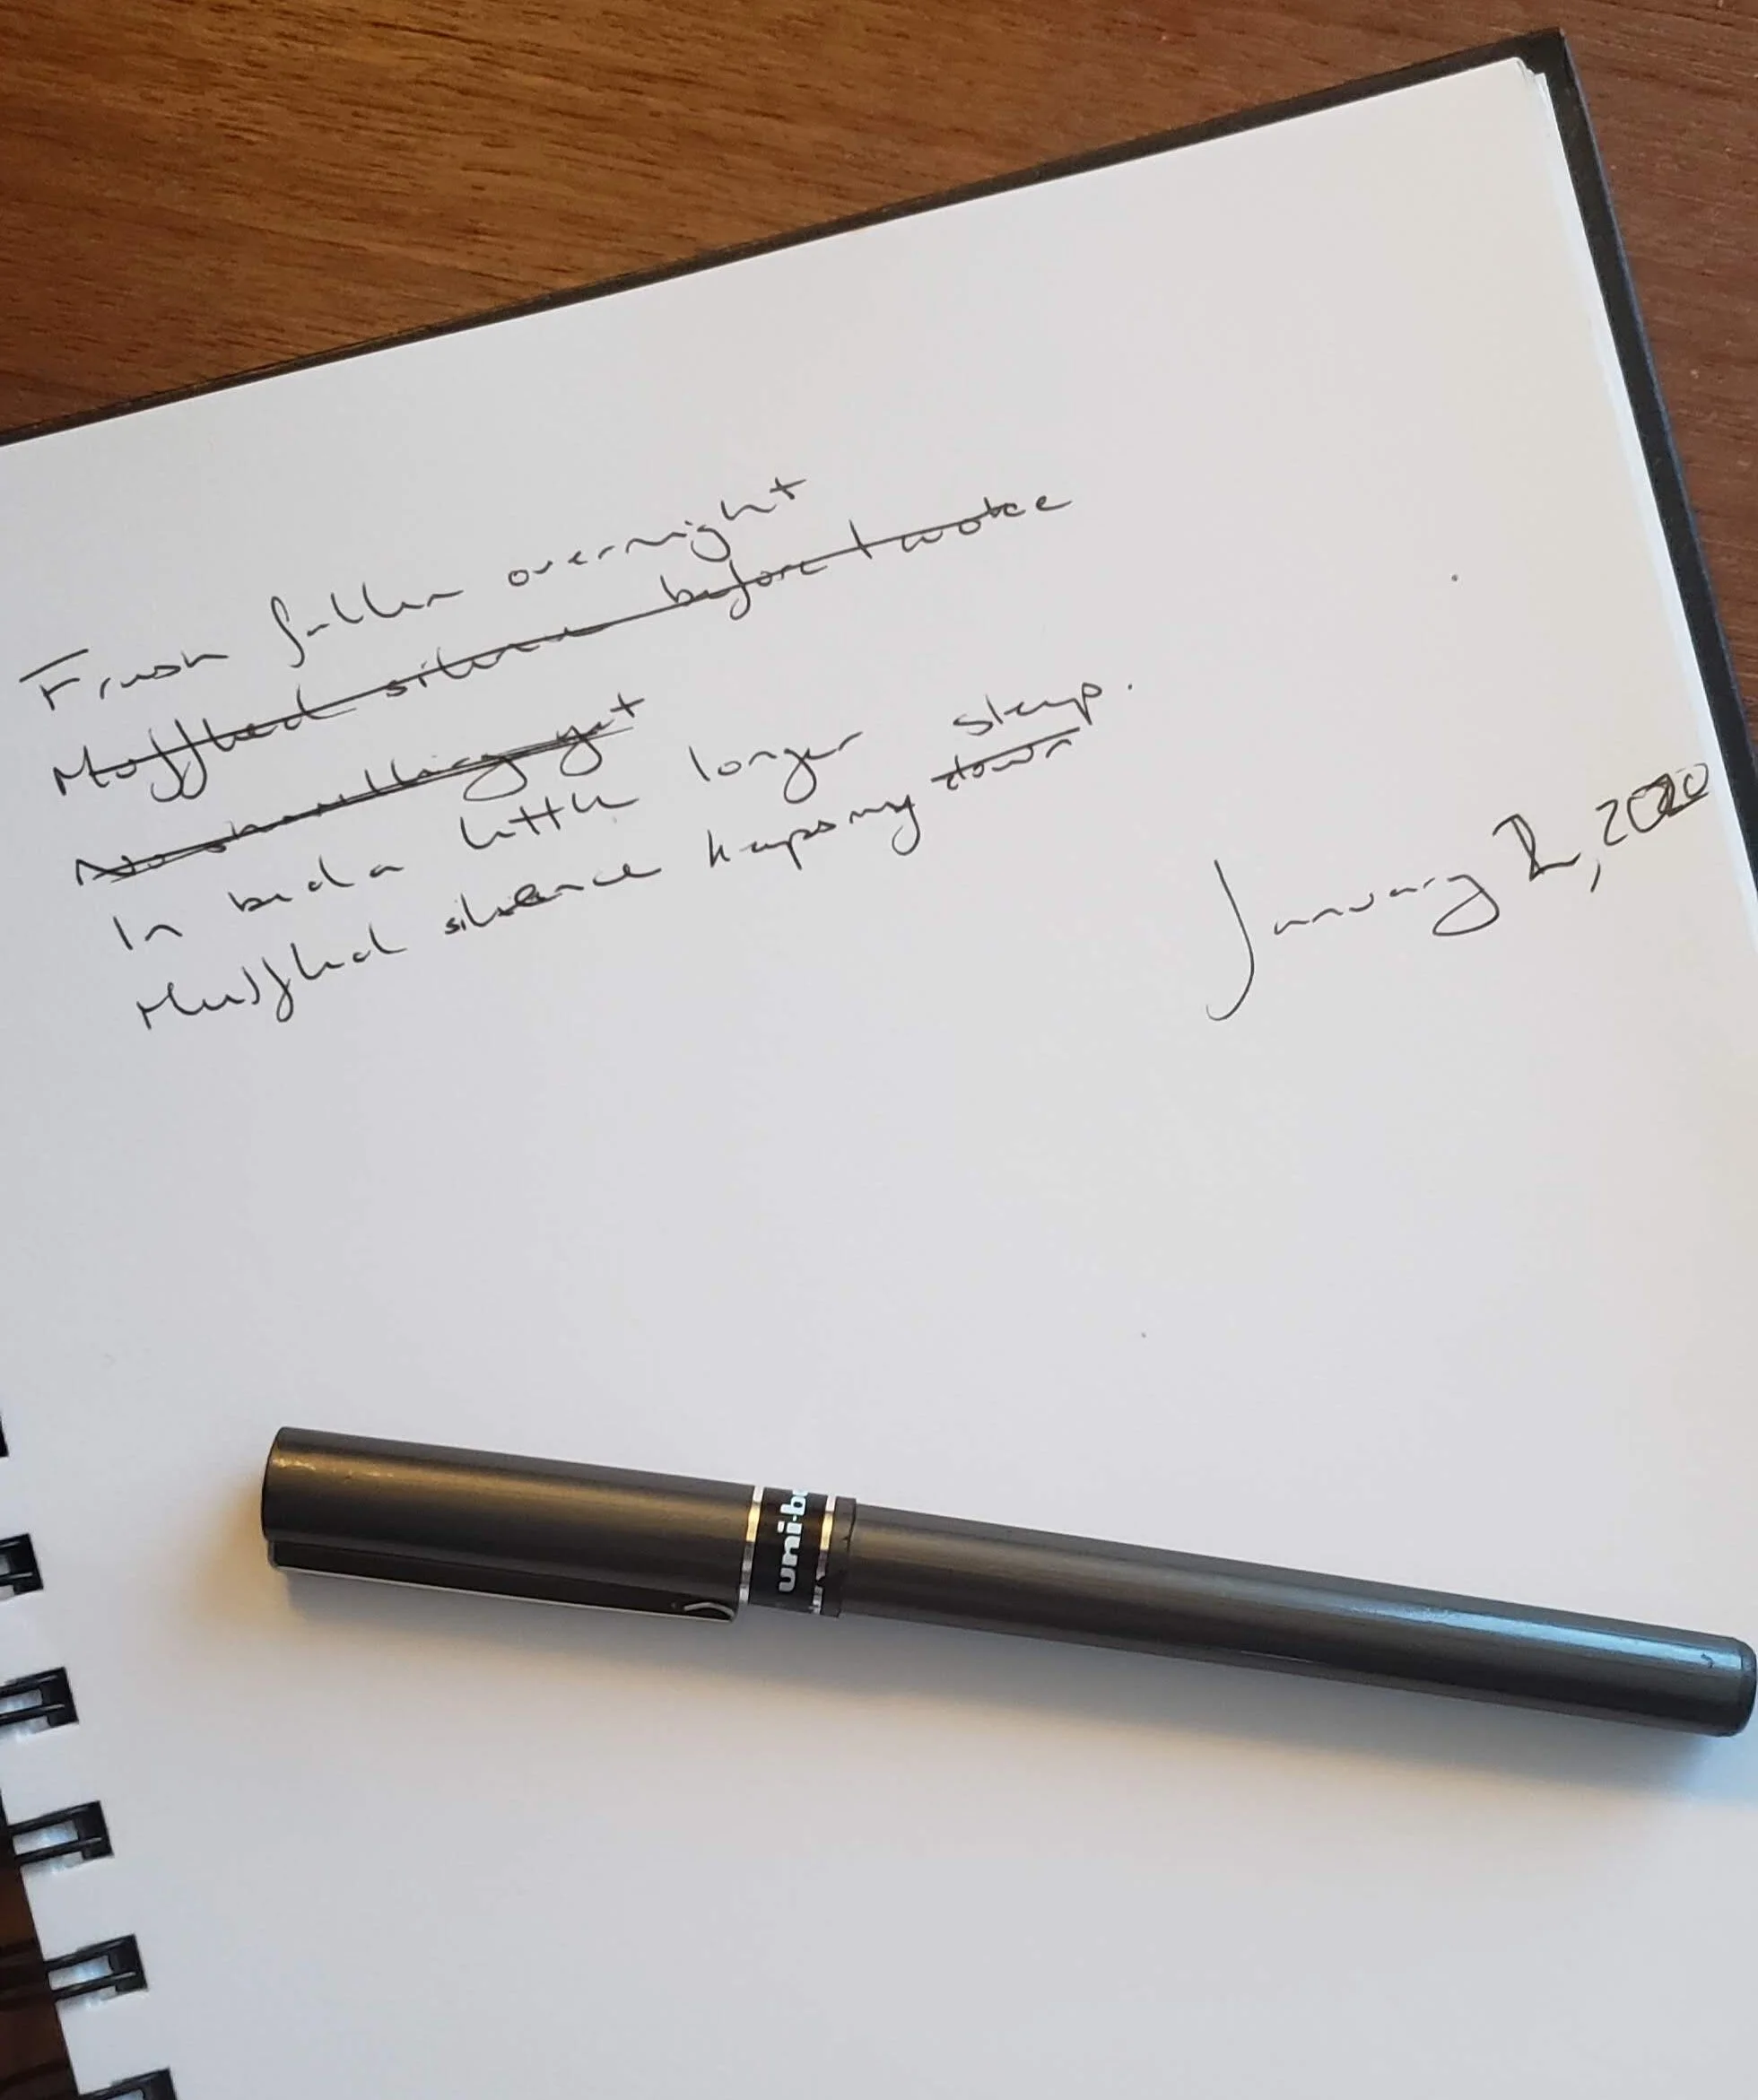 Fresh fallen overnight
Muffled silence before I woke
No shovelling yet
In bed a little longer
Muffled silence keeps my down sleep.
January 2, 2020
uni-b